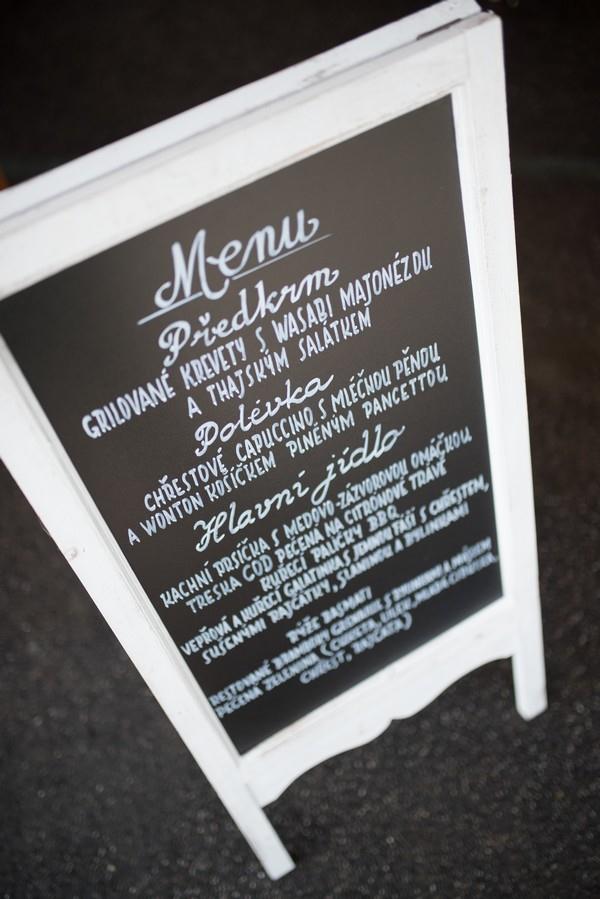 Menu
Předkrm
GRILOVANÉ KREVETY S WASABI MAJONÉZOU
A THAJSKÝM SALÁTKEM
Polévka
CHŘESTOVÉ CAPUCCINO S MLÉČNOU PĚNOU
A WONTON KOŠÍČKEM PLNĚNÝM PANCETTOU
Hlavní jídlo
KACHNÍ PRSÍČKA S MEDOVO-ZÁZVOROVOU OMÁČKOU
TRESKA COD PEČENÁ NA CITRÓNOVÉ TRÁVĚ
KUŘECÍ PALIČKY BBQ
VEPŘOVÁ A KUŘECÍ GALATINKA S JEMNOU FAŠÍ S CHŘESTEM,
SUŠENÝMI RAJČÁTKY, SLANINOU A BYLINKAMI
RÝŽE BASMATI
RESTOVANÉ BRAMBORY GRENAILLE S
PEČENÁ ZELENINA (CUKETA, LILEK, MLADÁ
CHŘEST, RAJČATA)